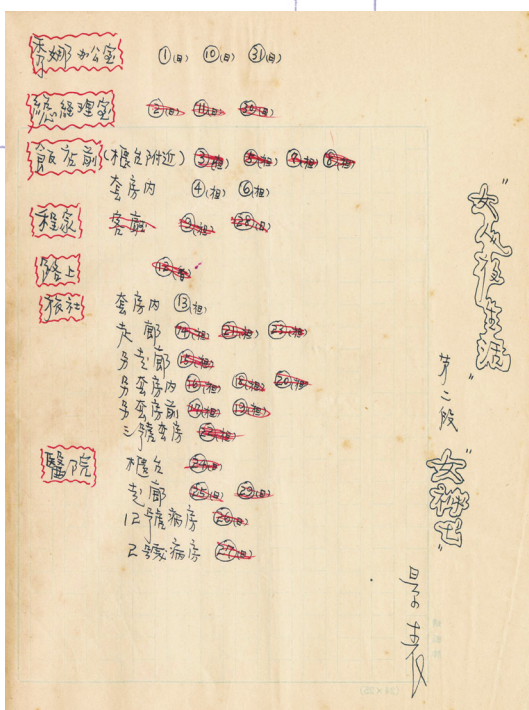 "女人夜生活"
第二段
"女神七"
景表
李娜办公室 ①(日) ⑩(日) ㉛(日)
總經理室 ②(日) ⑪(日) ㉚(日)
飯店前(櫃台附近) ③(担) ⑤(担) ⑦(担) ⑧(担)
套房内 ④(担) ⑥(担)
程家 客廳 ⑨(担) ㉘(日)
路上 ⑫(夜)
旅社 套房内 ⑬(担)
走廊 ⑭(担) ㉑(担) ㉓(担)
另走廊 ⑮(担)
另套房内 ⑯(担) ⑱(担) ⑳(担)
另套房前 ⑰(担) ⑲(担)
三號套房 ㉒(担)
醫院 櫃台 ㉔(日)
走廊 ㉕(日) ㉙(日)
12號病房 ㉖(日)
2號病房 ㉗(日)